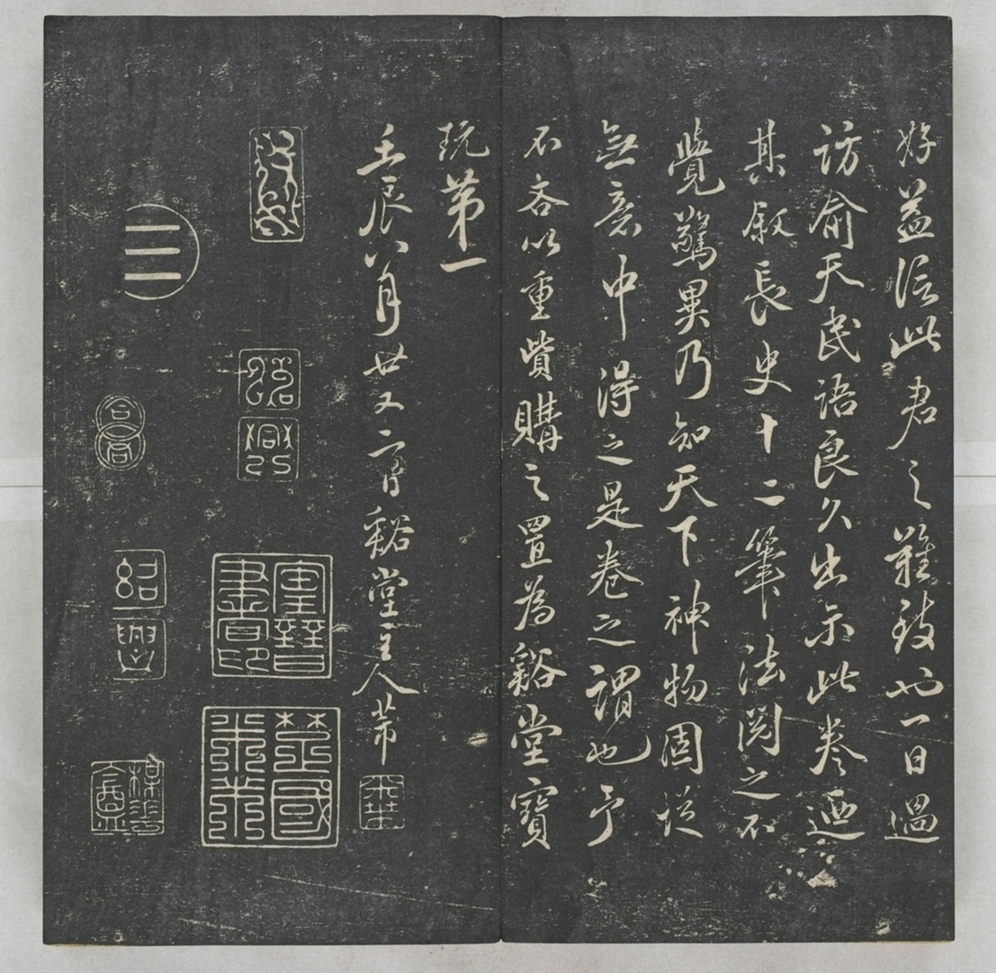 好益信此君之難致也一日過
訪俞天民語良久出示此卷迺
其叙長史十二筆法閱之不
覺驚異乃知天下神物固從
無意中得之是卷之謂也予
不吝以重貲購之置為谿堂寶
玩第一
壬辰八月廿又二日谿堂主人芾
寶晉書印
楚國米芾
紹興